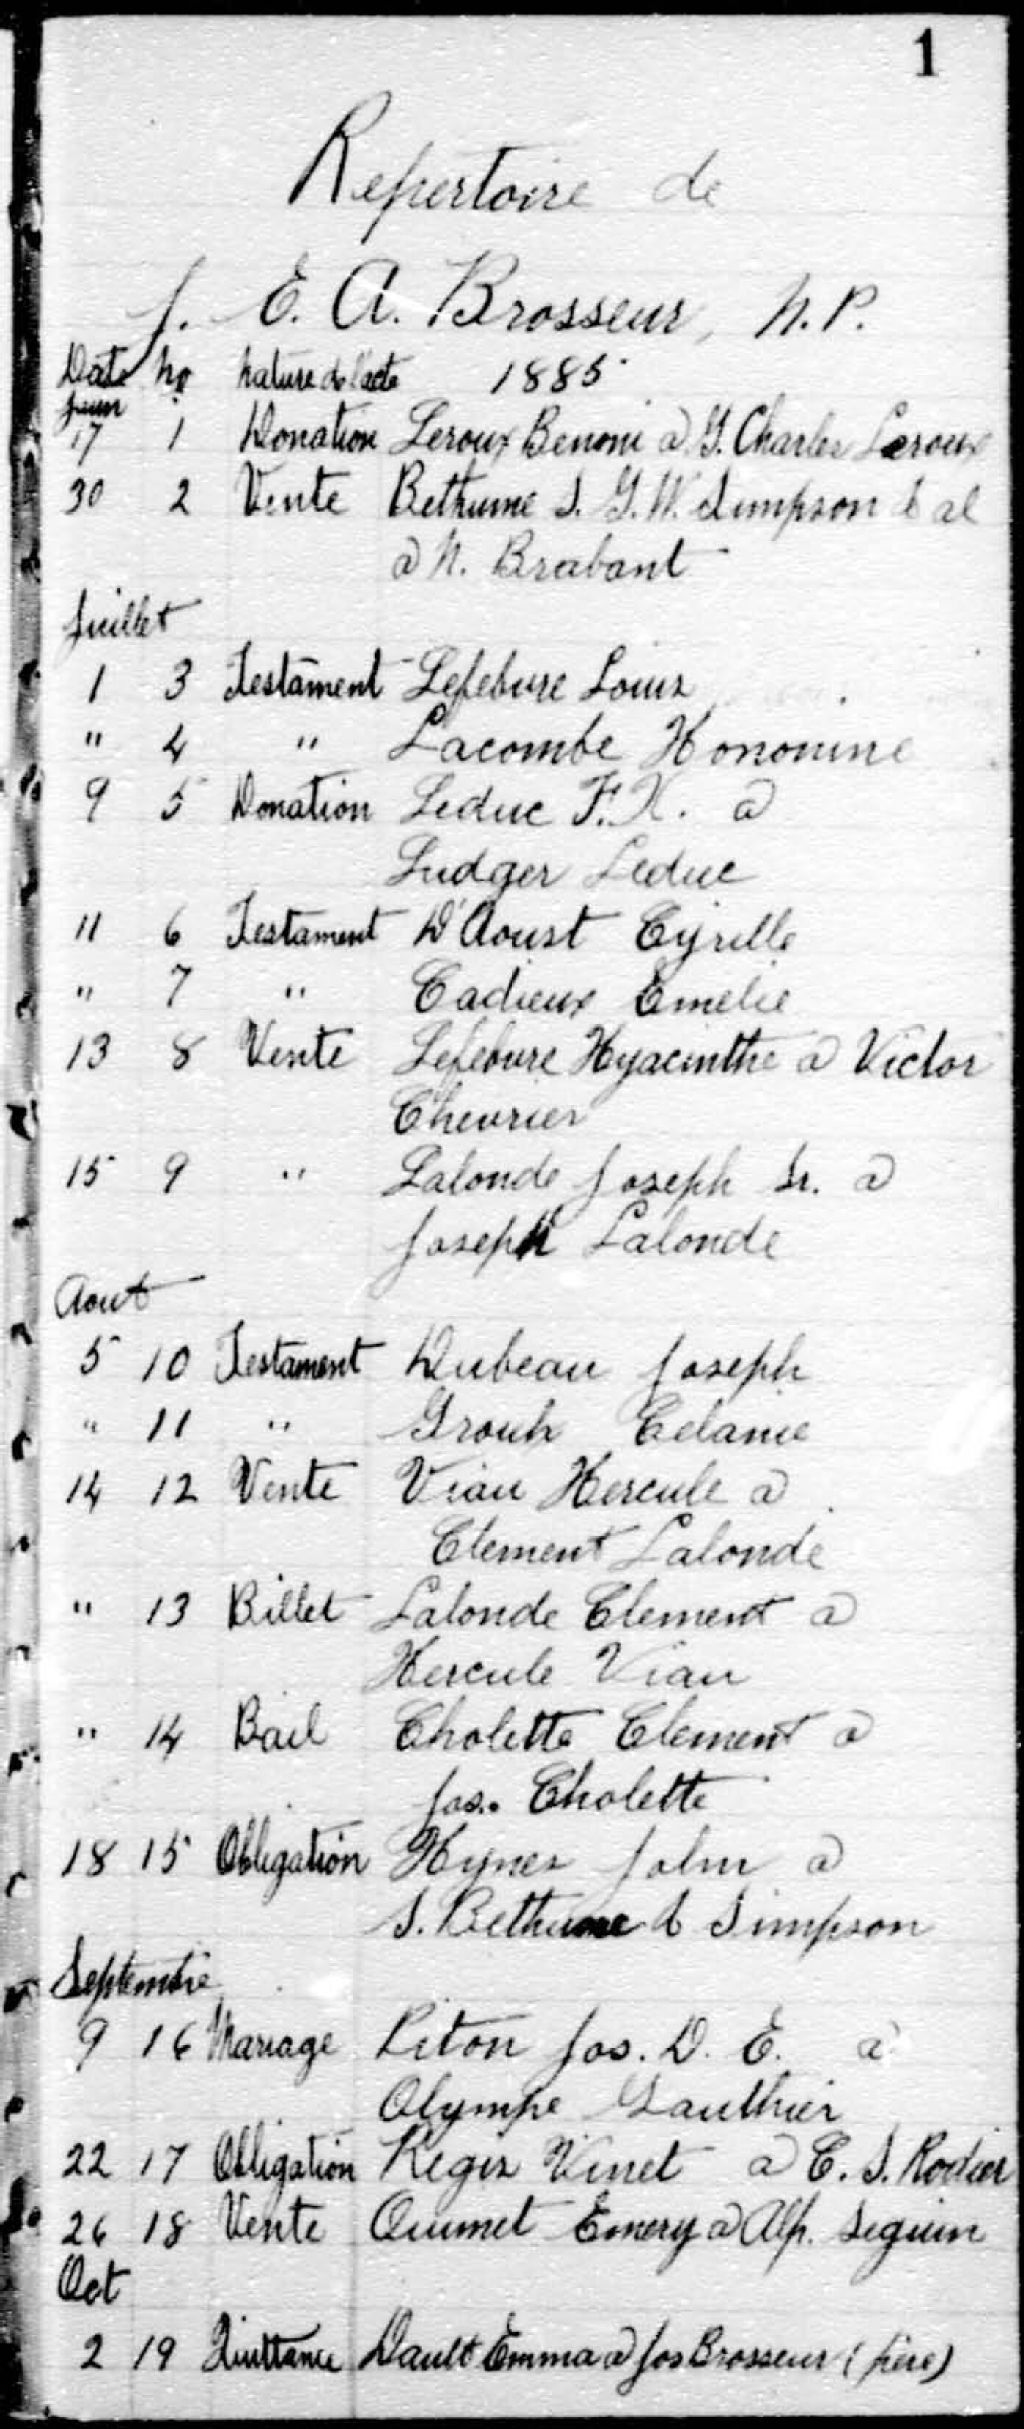 1
Repertoire de
J. E. A. Brosseur, N.P.
Date No Nature de l'acte 1885
Juin
17 1 Donation Leroux Benoni a G. Charles Leroux
30 2 Vente Bethume S. G. W. Simpson & al
a N. Brabant
Juillet
1 3 Testament Lefebvre Louis
" 4 " Lacombe Hononine
9 5 Donation Leduc F. X. a
Ludger Leduc
11 6 Testament D'Aoust Cyrille
" 7 " Cadieux Emelie
13 8 Vente Lefebvre Hyacinthe a Victor
Chevrier
15 9 " Lalonde Joseph Sr. a
Joseph Lalonde
Aout
5 10 Testament Dubeau Joseph
" 11 " Groulx Celanie
14 12 Vente Viau Hercule a
Clement Lalonde
" 13 Billet Lalonde Clement a
Hercule Viau
" 14 Bail Cholette Clement a
Jos. Cholette
18 15 Obligation Hynes John a
S. Bethune & Simpson
Septembre
9 16 Mariage Piton Jos. D. E. a
Olympe Gauthier
22 17 Obligation Regis Vinet a C. S. Rodier
26 18 Vente Ouimet Emery a Alp. Seguin
Oct
2 19 Quittance Dault Emma a Jos Brosseur (père)